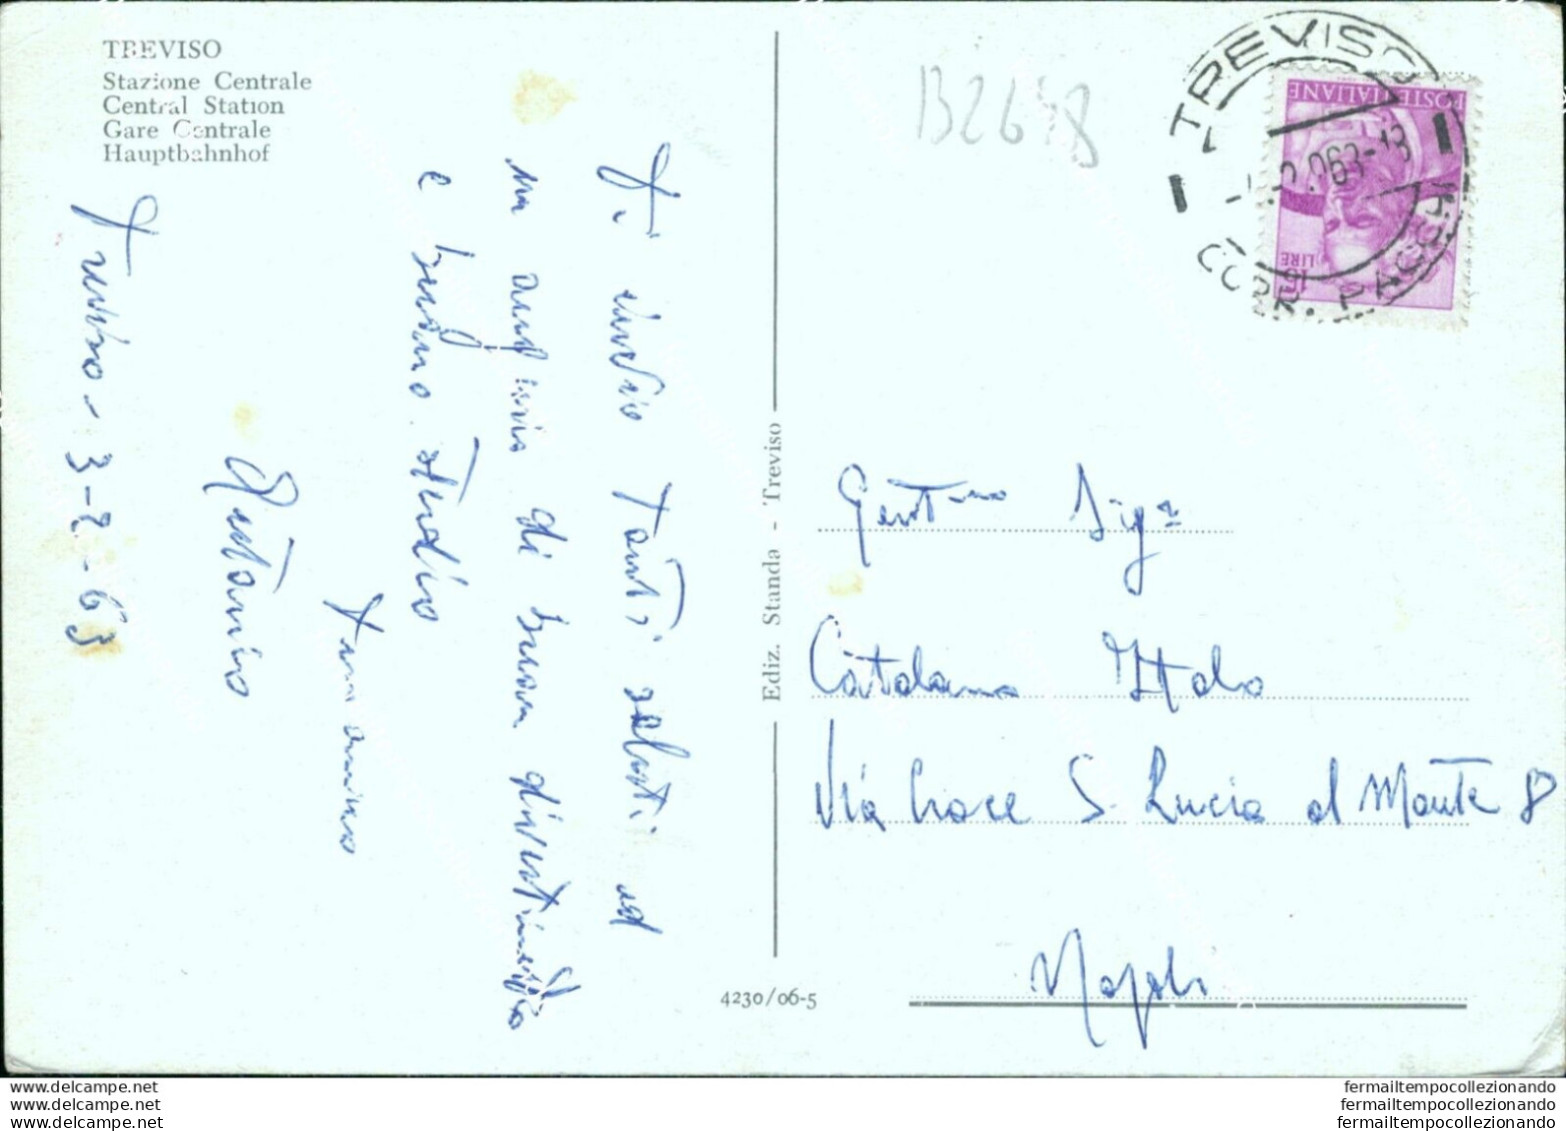 TREVISO
Stazione Centrale
Central Station
Gare Centrale
Hauptbahnhof
B2648
TREVISO
CORR. PACCHI
POSTE ITALIANE
LIRE
Ti invio tanti saluti ed
un augurio di buon divertimento
e buono studio
tuo amico
Antonio
Treviso - 3-2-63
Ediz. Standa - Treviso
4230/06-5
Gent.mo Sig.
Catalano Italo
Via Croce S. Lucia al Monte 8
Napoli
www.delcampe.net
www.delcampe.net
www.delcampe.net
fermailtempocollezionando
fermailtempocollezionando
fermailtempocollezionando